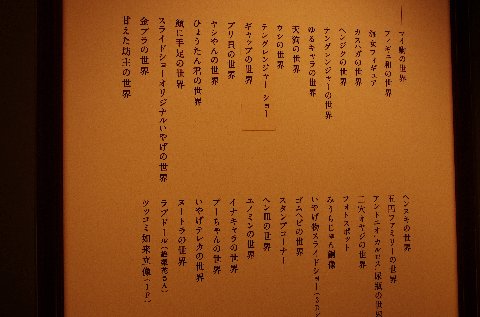 マイ駒の世界
フィギュ和の世界
海女フィギュア
カスハガの世界
ヘンジクの世界
テングレンジャーの世界
ゆるキャラの世界
天狗の世界
ウシの世界
テングレンジャーショー
ギャップの世界
ブリ貝の世界
ヤシやんの世界
ひょうたん君の世界
顔に手足の世界
スライドショーオリジナルいやげの世界
金プラの世界
甘えた坊主の世界
ヘンヌキの世界
五円ファミリーの世界
アントニオ・カルロス・尿瓶の世界
二穴オヤジの世界
フォトスポット
みうらじゅん銅像
いやげ物スライドショー
ゴムヘビの世界
スタンプコーナー
ヘン皿の世界
エノミンの世界
イナキャラの世界
プーちゃんの世界
いやげテレカの世界
ヌートラの世界
ラブドール
ツッコミ如来立像(1F)